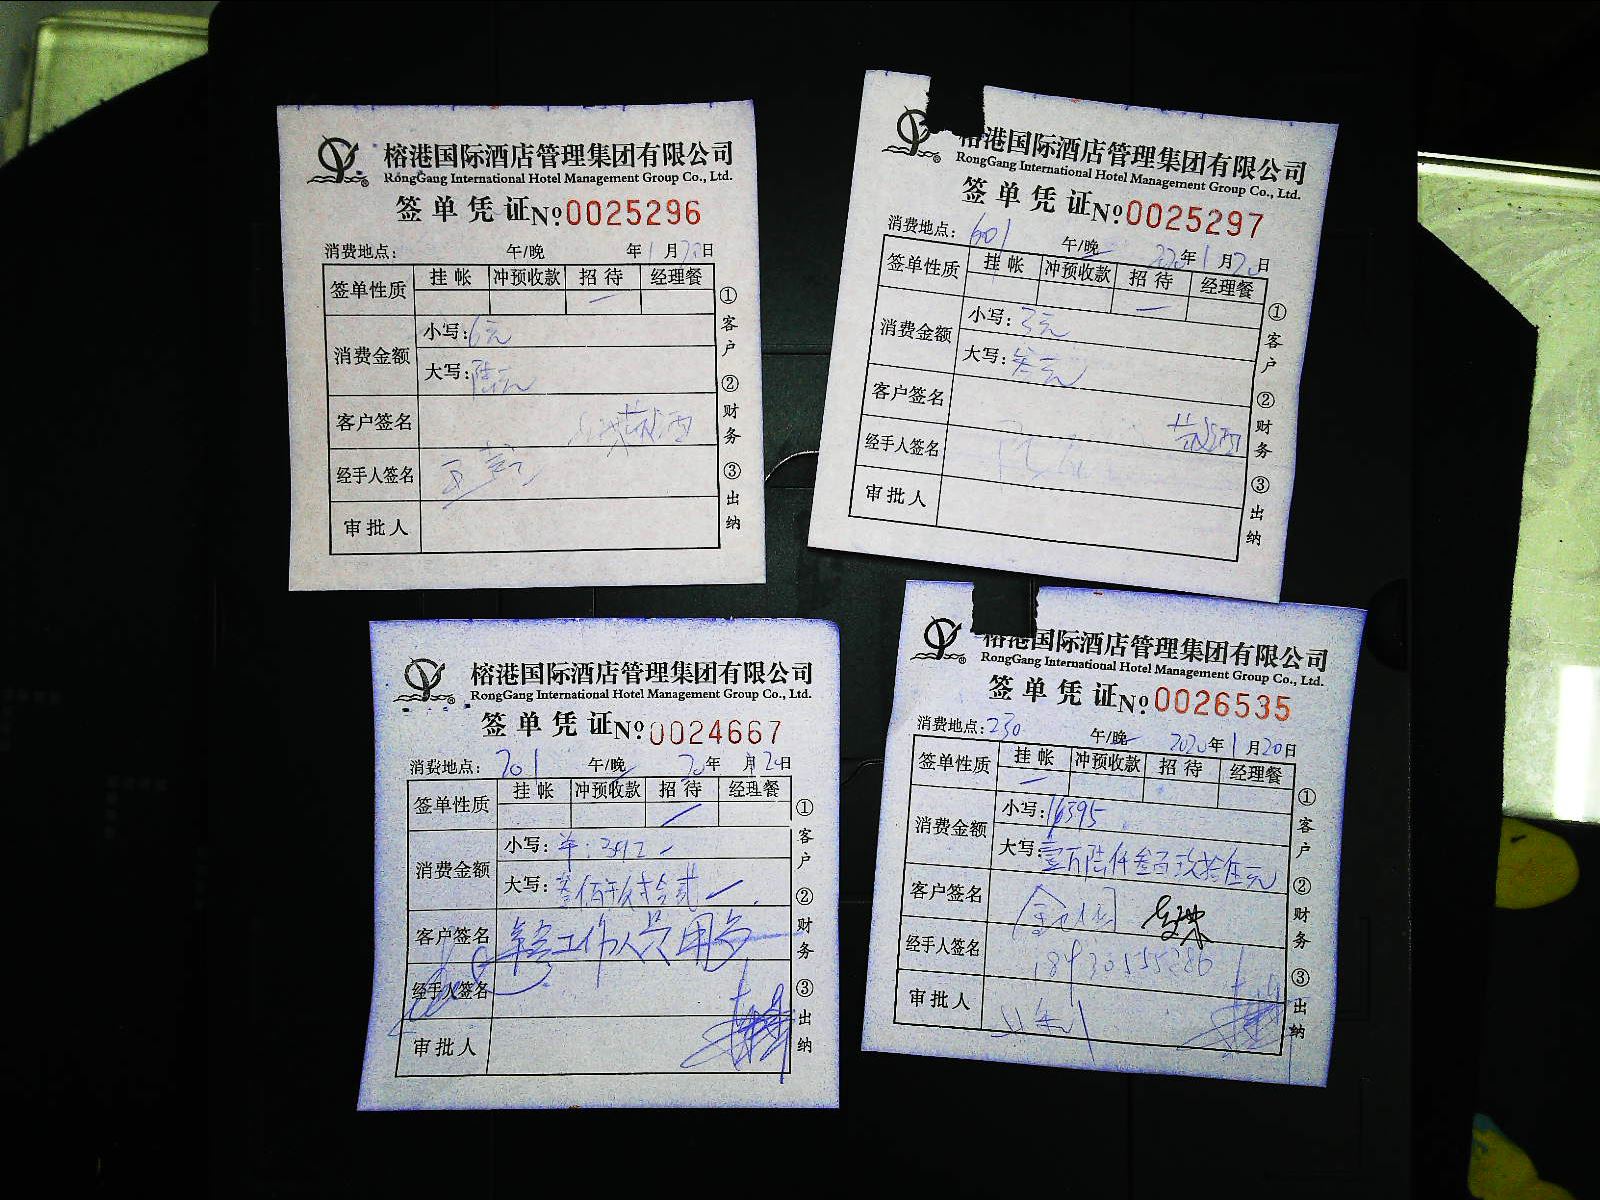 榕港国际酒店管理集团有限公司
RongGang International Hotel Management Group Co., Ltd.
签单凭证 №0025296
消费地点: 午/晚 年1月20日
签单性质 挂帐 冲预收款 招待 经理餐
消费金额 小写:6元
大写:陆元
客户签名
经手人签名
审批人
①客户 ②财务 ③出纳
榕港国际酒店管理集团有限公司
RongGang International Hotel Management Group Co., Ltd.
签单凭证 №0025297
消费地点:601 午/晚 2020年1月20日
签单性质 挂帐 冲预收款 招待 经理餐
消费金额 小写:3元
大写:叁元
客户签名
经手人签名
审批人
①客户 ②财务 ③出纳
榕港国际酒店管理集团有限公司
RongGang International Hotel Management Group Co., Ltd.
签单凭证 №0024667
消费地点:701 午/晚 20年1月20日
签单性质 挂帐 冲预收款 招待 经理餐
消费金额 小写:羊:392
大写:叁佰玖拾贰
客户签名 工作人员用
经手人签名
审批人
①客户 ②财务 ③出纳
榕港国际酒店管理集团有限公司
RongGang International Hotel Management Group Co., Ltd.
签单凭证 №0026535
消费地点:230 午/晚 2020年1月20日
签单性质 挂帐 冲预收款 招待 经理餐
消费金额 小写:16395
大写:壹万陆仟叁百玖拾伍元
客户签名
经手人签名
审批人
①客户 ②财务 ③出纳